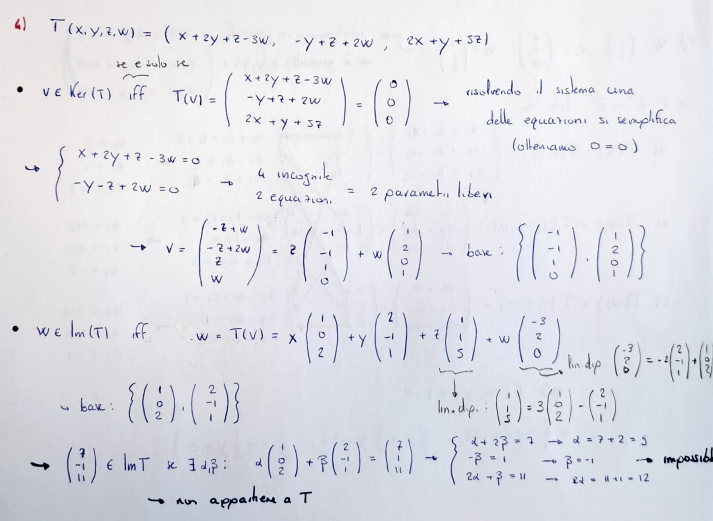 4) T(x,y,z,w) = (x+2y+z-3w, -y+z+2w, 2x+y+5z)
se e solo se
• v ∈ Ker(T) iff T(v) = (x+2y+z-3w, -y+z+2w, 2x+y+5z) = (0, 0, 0) → risolvendo il sistema una
delle equazioni si semplifica
(otteniamo 0=0)
↳ { x+2y+z-3w=0
-y-z+2w=0 → 4 incognite
2 equazioni = 2 parametri liberi
→ v = (-z+w, -z+2w, z, w) = z (-1, -1, 1, 0) + w (1, 2, 0, 1) → base: {(-1, -1, 1, 0), (1, 2, 0, 1)}
• w ∈ Im(T) iff w = T(v) = x (1, 0, 2) + y (2, -1, 1) + z (1, 1, 5) + w (-3, 2, 0)
lin. dip (-3, 2, 0) = -2 (2, -1, 1) + (1, 0, 2)
↳ base: {(1, 0, 2), (2, -1, 1)}
lin. dip.: (1, 1, 5) = 3 (1, 0, 2) - (2, -1, 1)
→ (7, -1, 11) ∈ Im T se ∃ α,β: α (1, 0, 2) + β (2, -1, 1) = (7, 1, 11) → { α+2β=7 → α=7+2=9
-β=1 → β=-1 → impossibile
2α+β=11 → 2α=11+1=12
→ non appartiene a T